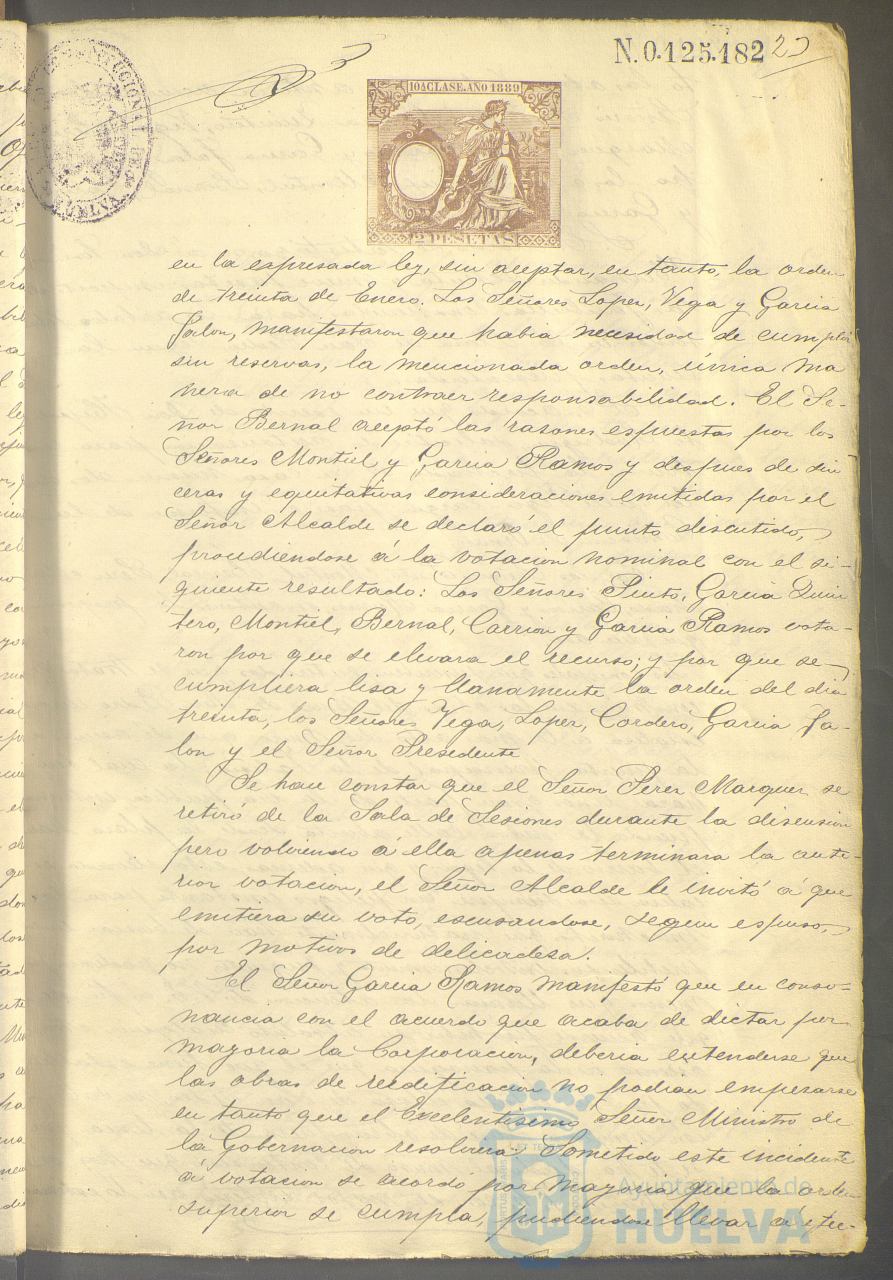 N.0.125.182 23
10ª CLASE. AÑO 1889
2 PESETAS
en la espresada ley, sin aceptar, en tanto, la orden
de treinta de Enero. Los Señores Lopez, Vega y Garcia
Jalon, manifestaron que habia necesidad de cumplir
sin reservas, la mencionada orden, única ma
nera de no contraer responsabilidad. El Se-
ñor Bernal aceptó las razones espuestas por los
Señores Montiel y Garcia Ramos y despues de sin
ceras y equitativas consideraciones emitidas por el
Señor Alcalde se declaró el punto discutido,
procediendose á la votacion nominal con el si-
guiente resultado: Los Señores Pinto, Garcia Quin
tero, Montiel, Bernal, Carrion y Garcia Ramos vota-
ron por que se elevara el recurso; y por que se
cumpliera lisa y llanamente la orden del dia
treinta, los Señores Vega, Lopez, Cordero, Garcia Ja-
lon y el Señor Presidente
Se hace constar que el Señor Perez Marquez se
retiró de la Sala de Sesiones durante la discusion
pero volviendo á ella apenas terminara la ante-
rior votacion, el Señor Alcalde le invitó á que
emitiera su voto, escusandose, segun espuso,
por motivos de delicadeza.
El Señor Garcia Ramos manifestó que en conso-
nancia con el acuerdo que acaba de dictar por
mayoria la Corporacion, deberia entenderse que
las obras de reedificacion no podian empezarse
en tanto que el Excelentisimo Señor Ministro de
la Gobernacion resolviera. Sometido este incidente
á votacion se acordó por mayoria que la orden
superior se cumpla, pudiendose llevar á efec-
Ayuntamiento de
HUELVA